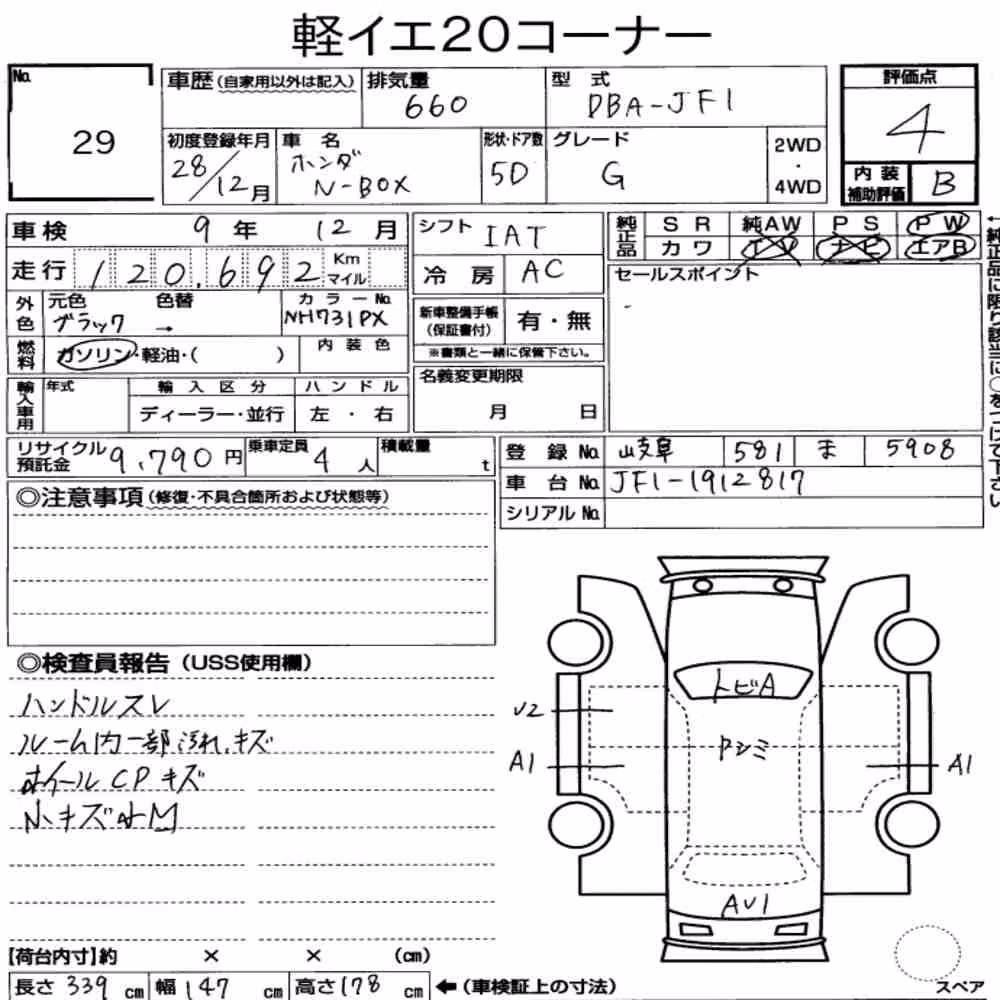 軽イエ20コーナー
No.
29
車歴(自家用以外は記入)
排気量
660
型式
DBA-JF1
評価点
4
初度登録年月
28/12月
車名
ホンダ
N-BOX
形状・ドア数
5D
グレード
G
2WD
・
4WD
内装
補助評価
B
車検 9年 12月
走行 120,692 Km
マイル
シフト IAT
冷房 AC
純正品
SR 純AW PS PW
カワ エアB
←純正品に限り該当に○をつけて下さい
セールスポイント
外色
元色 色替 カラーNo.
ブラック → NH731PX
燃料
ガソリン・軽油・( )
内装色
新車整備手帳
(保証書付)
有・無
※書類と一緒に保管下さい。
名義変更期限
月 日
輸入車用
年式 輸入区分 ハンドル
ディーラー・並行 左・右
リサイクル
預託金
9,790円
乗車定員
4人
積載量
t
登録No. 581 ま 5908
車台No. JF1-1912817
シリアルNo.
◎注意事項(修復・不具合箇所および状態等)
◎検査員報告(USS使用欄)
ハンドルスレ
ルーム内一部汚れ、キズ
ホイールCPキズ
小キズ小凹
トビA
U2
A1
A1
AU1
【荷台内寸】約 × × (cm)
長さ 339 cm 幅 147 cm 高さ 178 cm ←(車検証上の寸法)
スペア